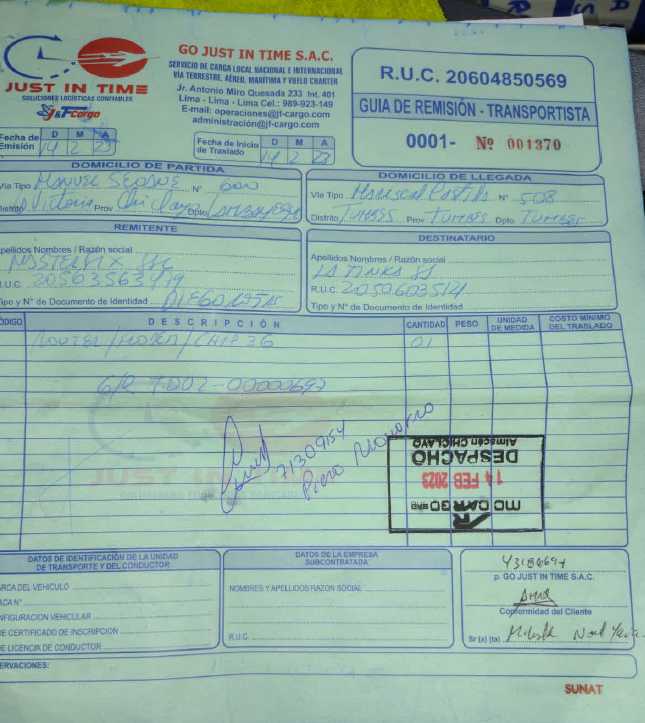 JUST IN TIME
SOLUCIONES LOGÍSTICAS CONFIABLES
J&FCargo
GO JUST IN TIME S.A.C.
SERVICIO DE CARGA LOCAL NACIONAL E INTERNACIONAL
VÍA TERRESTRE, AÉREO, MARÍTIMA Y VUELO CHARTER
Jr. Antonio Miro Quesada 233 Int. 401
Lima - Lima - Lima Cel.: 989-923-149
E-mail: operaciones@jf-cargo.com
administración@jf-cargo.com
R.U.C. 20604850569
GUIA DE REMISIÓN - TRANSPORTISTA
0001- Nº 001370
Fecha de Emisión D M A
14 2 23
Fecha de Inicio de Traslado D M A
14 2 23
DOMICILIO DE PARTIDA
Vía Tipo Manuel Seoane Nº 600
Distrito La Victoria Prov Chiclayo Dpto Lambayeque
DOMICILIO DE LLEGADA
Vía Tipo Mariscal Castilla Nº 503
Distrito Tumbes Prov Tumbes Dpto. Tumbes
REMITENTE
Apellidos Nombres / Razón social
R.U.C. 20563563419
Tipo y N° de Documento de Identidad
DESTINATARIO
Apellidos Nombres / Razón social
LA TINKA SA
R.U.C.
Tipo y N° de Documento de Identidad
CÓDIGO DESCRIPCIÓN CANTIDAD PESO UNIDAD DE MEDIDA COSTO MÍNIMO DEL TRASLADO
ROUTER/MODEM/CHIP 3G 01
G/R TD02-00000697
71309154
Piero Navarro
MC CARGO
14 FEB 2023
DESPACHO
Almacén CHICLAYO
JUST IN TIME
SOLUCIONES LOGÍSTICAS CONFIABLES
DATOS DE IDENTIFICACIÓN DE LA UNIDAD
DE TRANSPORTE Y DEL CONDUCTOR
MARCA DEL VEHICULO
PLACA N°
CONFIGURACION VEHICULAR
DE CERTIFICADO DE INSCRIPCION
DE LICENCIA DE CONDUCTOR
DATOS DE LA EMPRESA
SUBCONTRATADA
NOMBRES Y APELLIDOS RAZON SOCIAL
R.U.C.
43184694
p. GO JUST IN TIME S.A.C.
Conformidad del Cliente
Sr (a) (ta)
OBSERVACIONES:
SUNAT